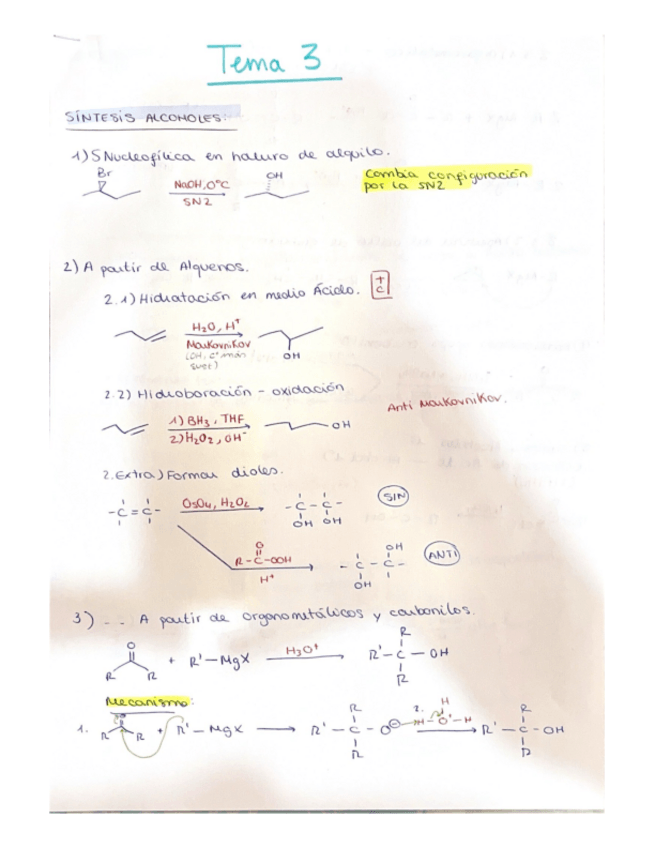 Tema 3
SÍNTESIS ALCOHOLES:
1) SNucleofílica en haluro de alquilo.
Br
NaOH, 0°C
SN2
OH
Cambia configuración
por la SN2
2) A partir de Alquenos.
2.1) Hidratación en medio Ácido.
+
C
H₂O, H⁺
Markovnikov
(OH, C⁺ más
sust)
OH
2.2) Hidroboración - oxidación
Anti Markovnikov.
1) BH₃, THF
2) H₂O₂, OH⁻
OH
2.Extra) Formar dioles.
-C=C-
OsO₄, H₂O₂
-C-C-
OH OH
SIN
O
R-C-OOH
H⁺
OH
-C-C-
OH
ANTI
3) -- A partir de organometálicos y carbonilos.
O
R R
+ R'-MgX
H₃O⁺
R
R'-C-OH
R
Mecanismo:
1.
O
R R
+ R'-MgX
R
R'-C-O⊖
R
2.
H
H-O-H
R
R'-C-OH
R